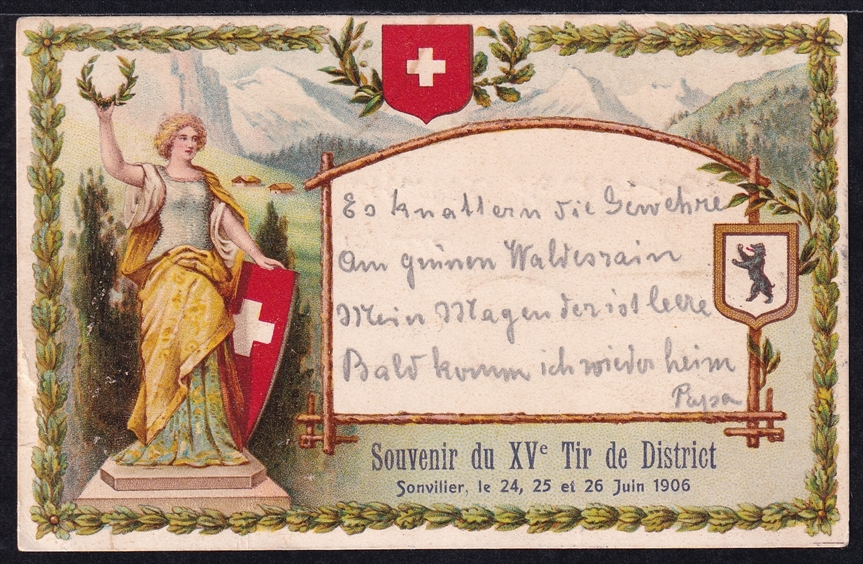 Es knattern die Gewehre
Am grünen Waldesrain
Mein Magen der ist leere
Bald komm ich wieder heim
Papa
Souvenir du XVe Tir de District
Sonvilier, le 24, 25 et 26 Juin 1906